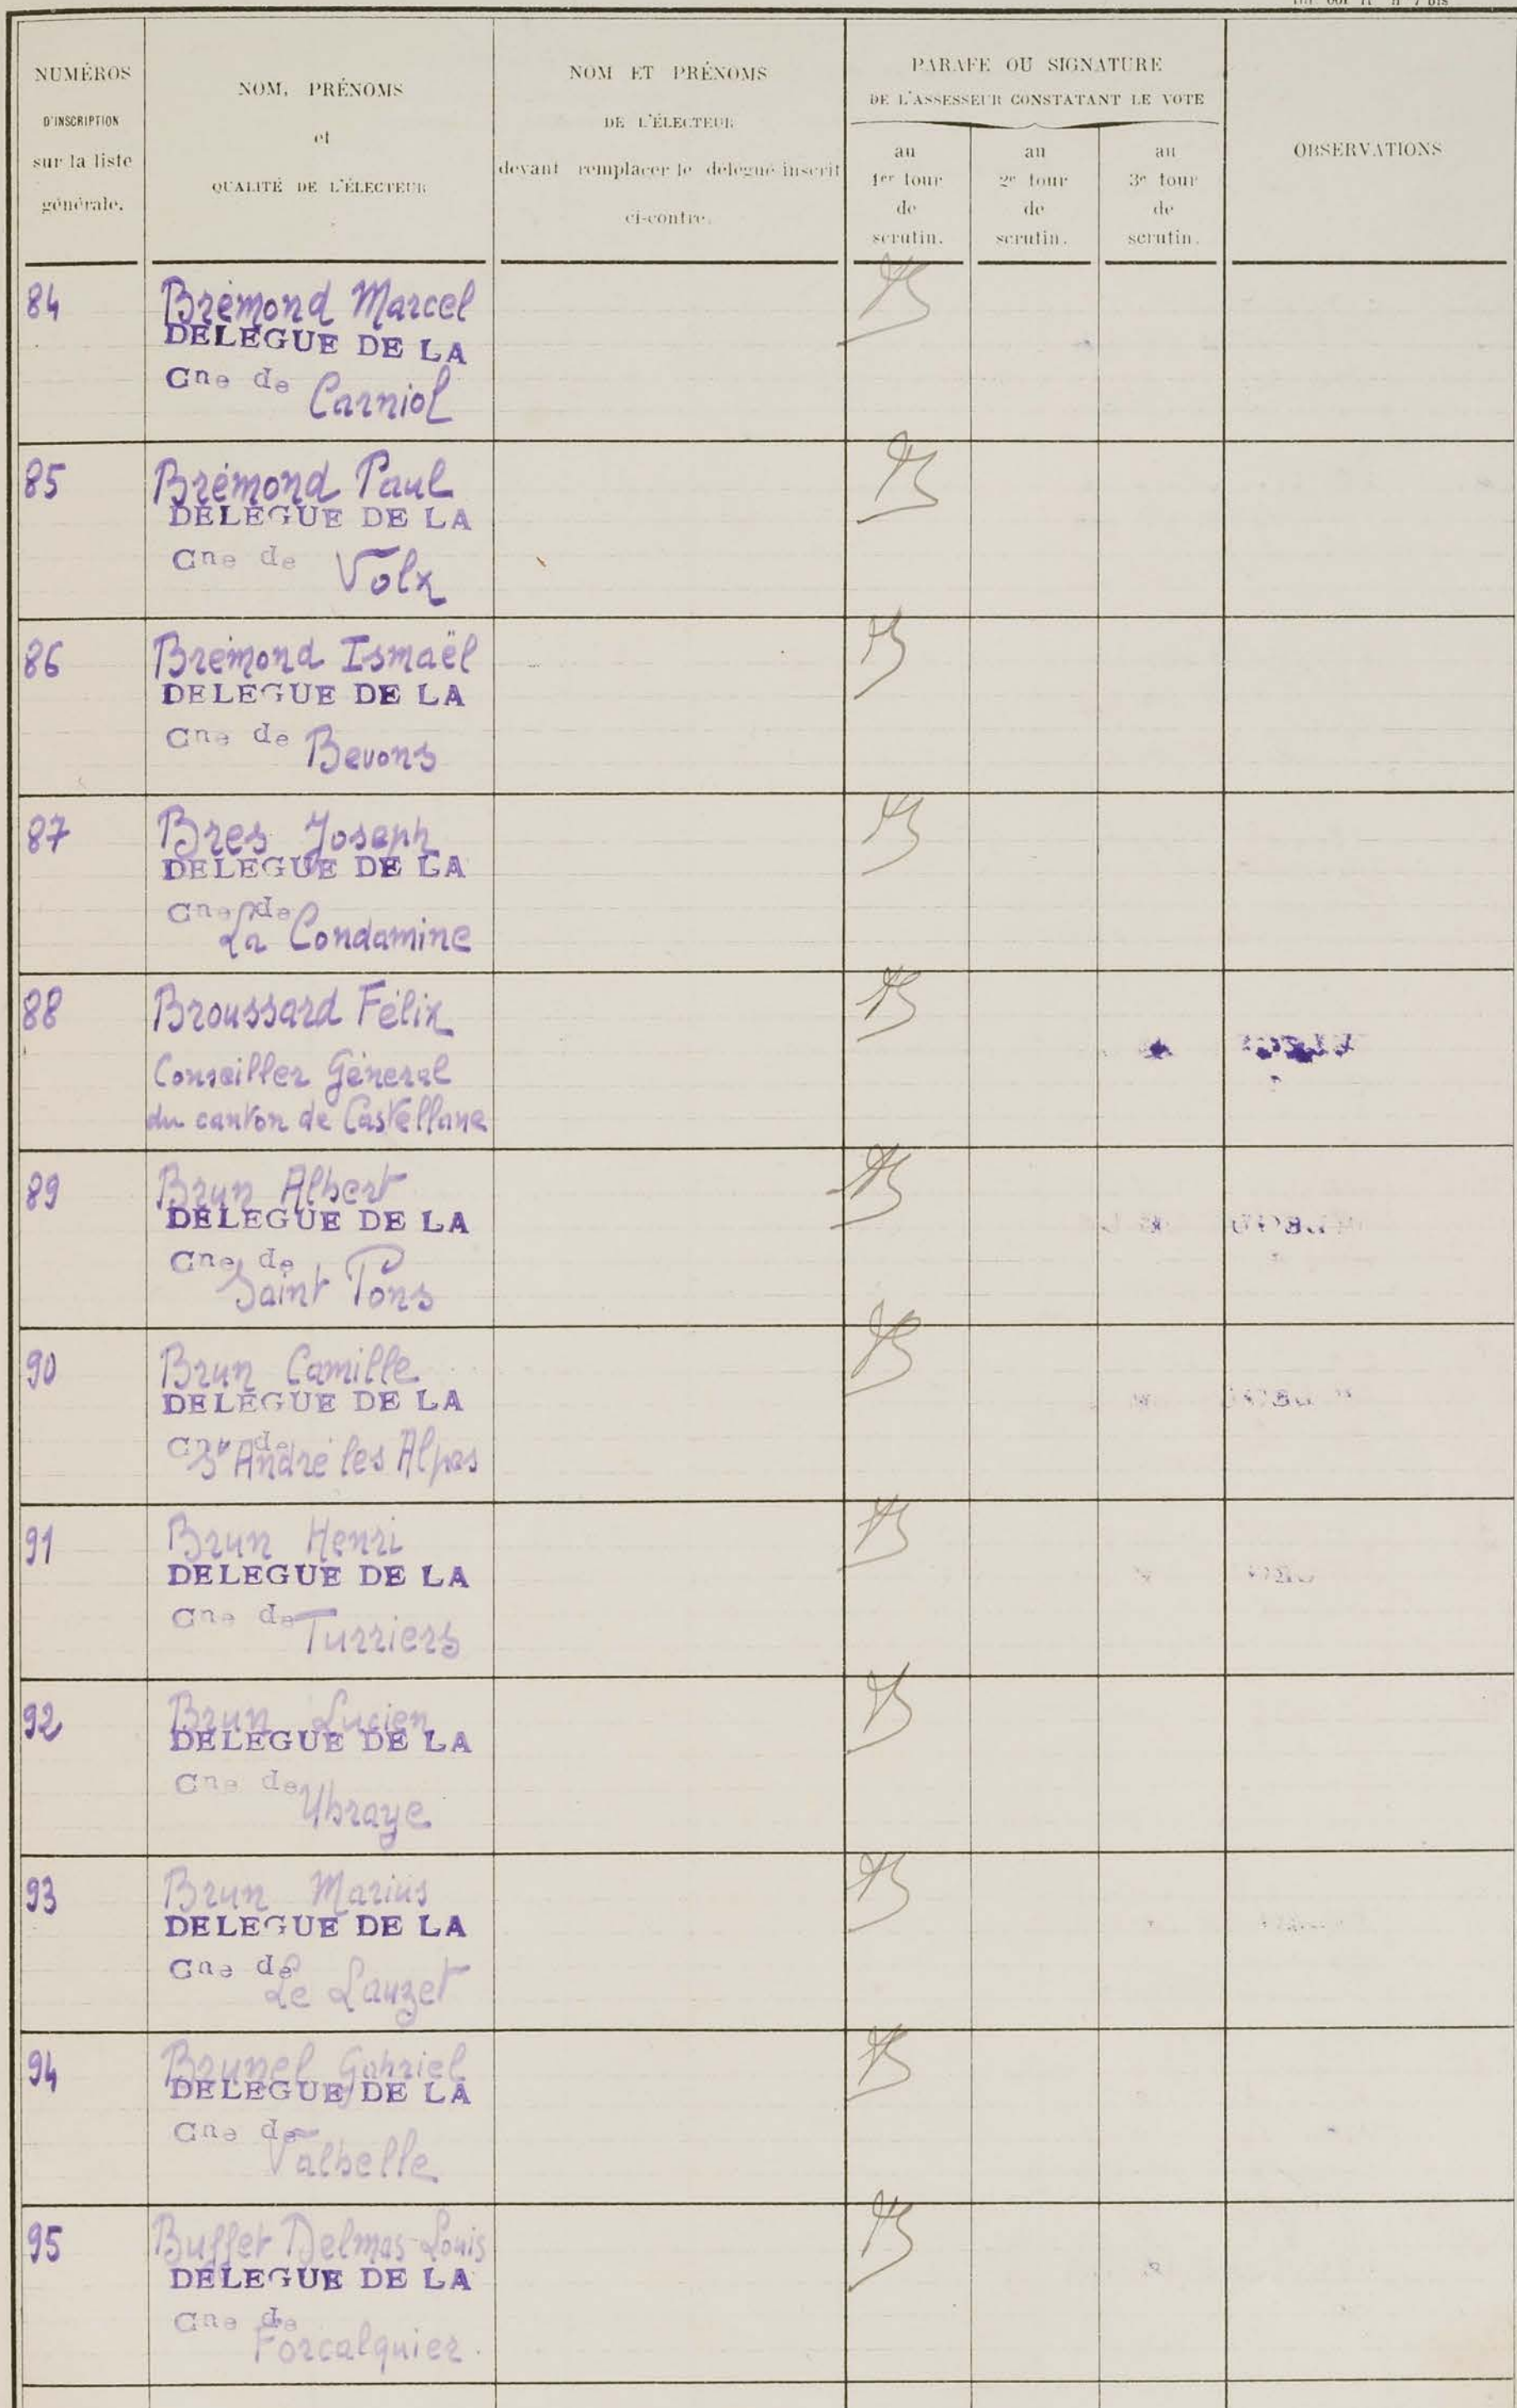 NUMÉROS
D'INSCRIPTION
sur la liste
générale.
NOM, PRÉNOMS
et
QUALITÉ DE L'ÉLECTEUR
NOM ET PRÉNOMS
DE L'ÉLECTEUR
devant remplacer le délégué inscrit
ci-contre.
PARAFE OU SIGNATURE
DE L'ASSESSEUR CONSTATANT LE VOTE
au
1er tour
de
scrutin.
au
2e tour
de
scrutin.
au
3e tour
de
scrutin.
OBSERVATIONS
84
Brémond Marcel
DELEGUE DE LA
Cne de Carniol
85
Brémond Paul
DELEGUE DE LA
Cne de Volx
86
Brémond Ismaël
DELEGUE DE LA
Cne de Bevons
87
Bres Joseph
DELEGUE DE LA
Cne de
La Condamine
88
Broussard Félix
Conseiller Général
du canton de Castellane
89
Brun Albert
DELEGUE DE LA
Cne de
Saint Pons
90
Brun Camille
DELEGUE DE LA
Cne de
St André les Alpes
91
Brun Henri
DELEGUE DE LA
Cne de Turriers
92
Brun Lucien
DELEGUE DE LA
Cne de Ubraye
93
Brun Marius
DELEGUE DE LA
Cne de
Le Lauzet
94
Brunel Gabriel
DELEGUE DE LA
Cne de
Valbelle
95
Buffet Delmas Louis
DELEGUE DE LA
Cne de
Forcalquier.